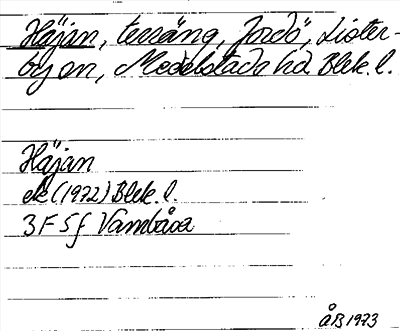 Häjan, terräng, Jordö, Lister-
by sn, Medelstads hd Blek. l.
Häjan
ek (1972) Blek. l.
3 F 5 f Vambåsa
ÅB 1973